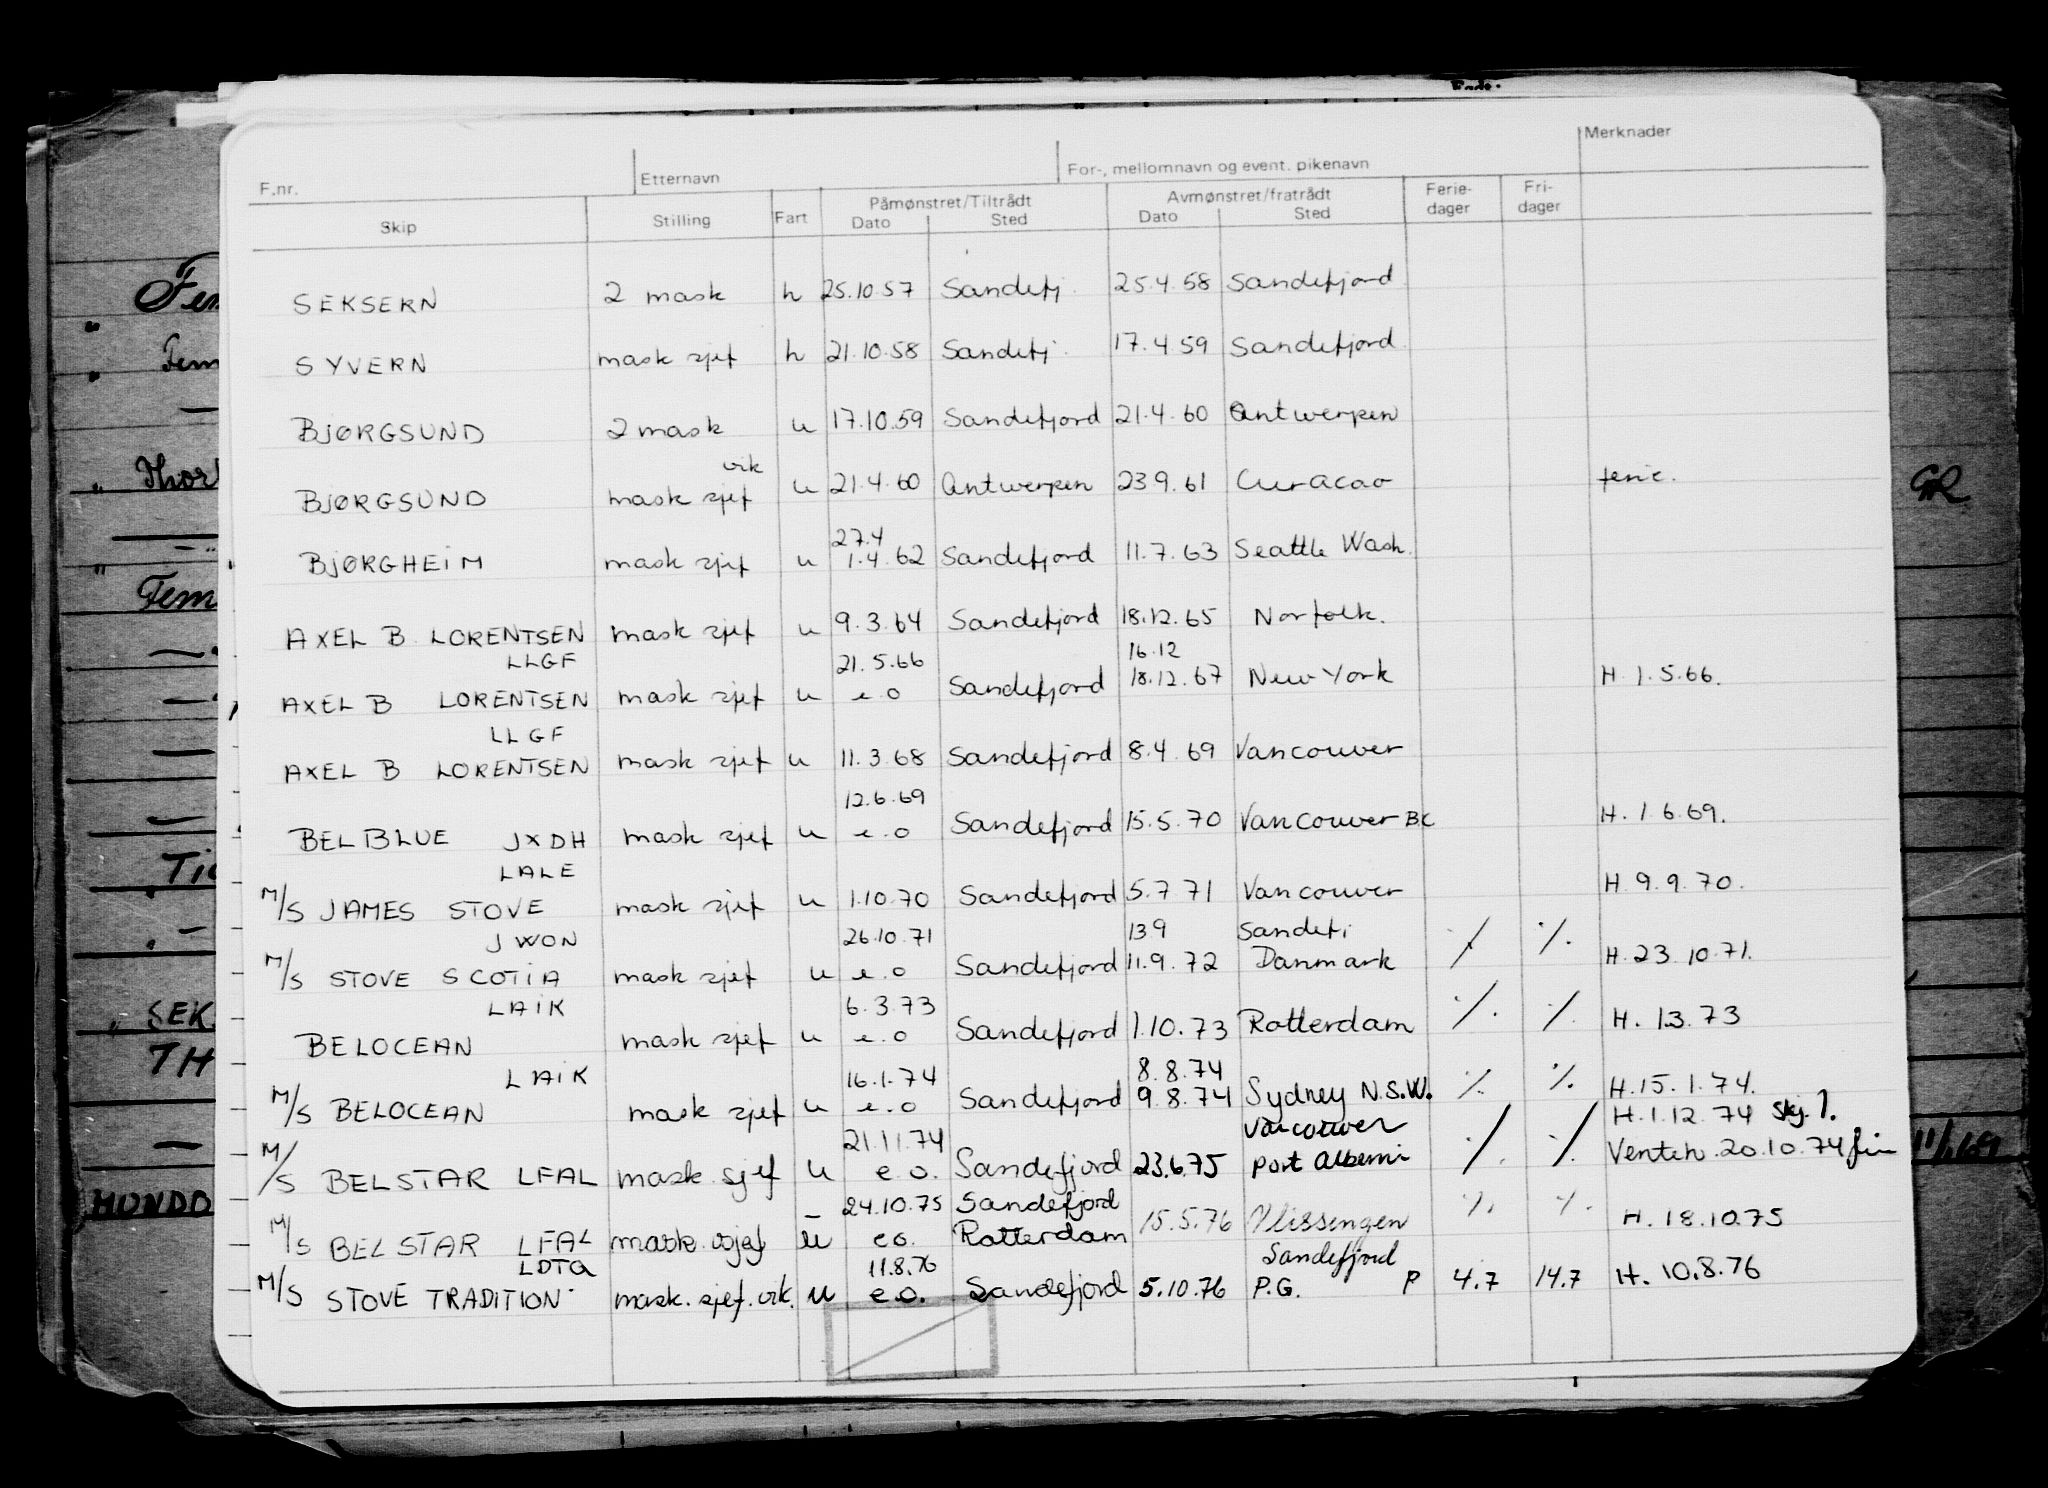 F.nr. Etternavn For-, mellomnavn og event. pikenavn Merknader
Skip Stilling Fart Påmønstret/Tiltrådt Avmønstret/fratrådt Ferie- Fri-
Dato Sted Dato Sted dager dager
SEKSERN 2 mask h 25.10.57 Sandefj. 25.4.58 Sandefjord
SYVERN mask sjef h 21.10.58 Sandefj. 17.4.59 Sandefjord
BJØRGSUND 2 mask u 17.10.59 Sandefjord 21.4.60 Antwerpen
vik
BJØRGSUND mask sjef u 21.4.60 Antwerpen 23 9.61 Curacao ferie.
27.4
BJØRGHEIM mask sjef u 1.4.62 Sandefjord 11.7.63 Seattle Wash.
AXEL B LORENTSEN mask sjef u 9.3.64 Sandefjord 18.12.65 Norfolk.
LLGF 21.5.66 16.12
AXEL B LORENTSEN mask sjef u e.o Sandefjord 18.12.67 New York H. 1.5.66.
LLGF
AXEL B LORENTSEN mask sjef u 11.3.68 Sandefjord 8.4.69 Vancouver
12.6.69
BELBLUE JXDH mask sjef u e.o Sandefjord 15.5.70 Vancouver BC H. 1.6.69.
LALE
M/S JAMES STOVE mask sjef u 1.10.70 Sandefjord 5.7.71 Vancouver H. 9.9.70.
JWON 26.10.71 13 9 Sandefj
M/S STOVE SCOTIA mask sjef u e.o Sandefjord 11.9.72 Danmark ⁒ ⁒ H. 23.10.71.
LAIK 6.3.73
BELOCEAN mask sjef u e.o Sandefjord 1.10.73 Rotterdam ⁒ ⁒ H. 1.3.73
LAIK 16.1.74 8.8.74
M/S BELOCEAN mask sjef u e.o Sandefjord 9.8.74 Sydney N.S.W. ⁒ ⁒ H. 15.1.74.
21.11.74 Vancouver H. 1.12.74 Skj. 1.
M/S BELSTAR LFAL mask sjef u e.o. Sandefjord 23.6.75 Port Alberni ⁒ ⁒ Venteh. 20.10.74
24.10.75 Sandefjord
M/S BELSTAR LFAL mask. sjef u eo. Rotterdam 15.5.76 Vlissengen ⁒ ⁒ H. 18.10.75
LDTQ 11.8.76 Sandefjord
M/S STOVE TRADITION mask. sjef. vik. u e.o. Sandefjord 5.10.76 P.G. P 4.7 14.7 H. 10.8.76
Fem
Fem
Thor
Fem
SEK
TH
MONDO